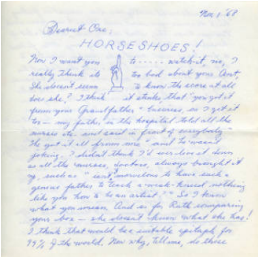 Nov 1 '68
Dearest One,
HORSESHOES!
Now I want you to ..... watch it, me, I
really think it too bad about your Aunt,
She doesn't seem to know the score at all
does she? I think it stinks that you got it
from your Grandfather - I got it
to - my father in the hospital told all the
nurses etc. and said in front of everybody "
He got it all from me" and he wasn't
joking. I didn't think I'd live it down
as all the nurses, always brought it
up, such as "isn't marvelous to have such a
genius father to teach a nothing
like you how to be an artist." So I know
what you mean. And as for Ruth comparing
your - she doesn't know what she has!
I think that would be a suitable epitaph for
99% of the world. Now why, tell me, do these